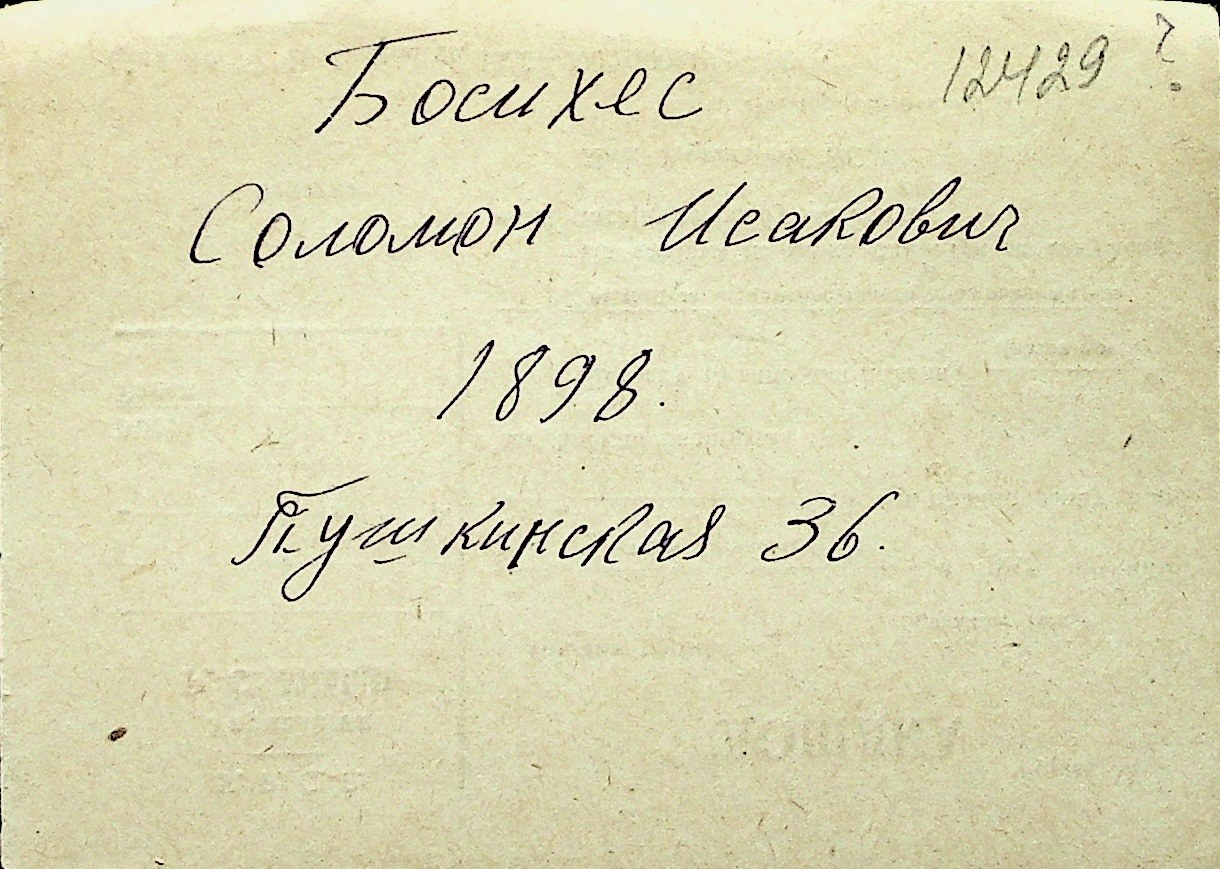 12429 ?
Босихес
Соломон Исакович
1898.
Пушкинская 36.